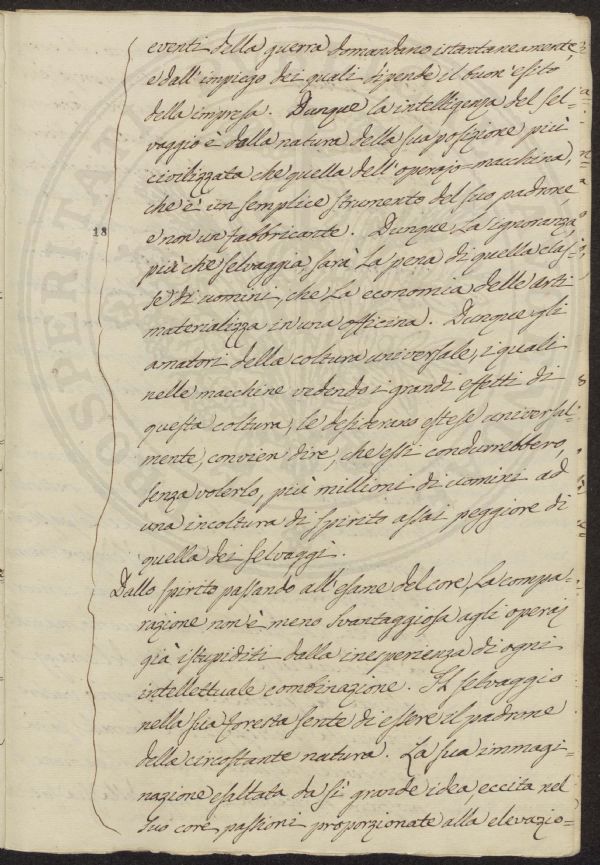 eventi della guerra domandano istantaneamente,
e dall'impiego dei quali dipende il buon'esito
della impresa. Dunque la intelligenza del sel-
vaggio è dalla natura della sua posizione più
civilizzata che quella dell'operajo-macchina,
che è un semplice strumento del suo padrone,
e non un fabbricante. Dunque la ignoranza,
18
più che selvaggia, sarà la pena di quella clas-
se di uomini, che la economia delle arti
materializza in una officina. Dunque gli
amatori della coltura universale, i quali
nelle macchine vedendo i grandi effetti di
questa coltura, le desiderano estese universal-
mente, convien dire, che essi condurrebbero,
senza volerlo, più millioni di uomini ad
una incoltura di spirito assai peggiore di
quella dei selvaggi.
Dallo spirito passando all'esame del core, la compa-
razione non è meno svantaggiosa agli operaj
già istupiditi dalla inesperienza di ogni
intellettuale combinazione. Il selvaggio
nella sua foresta sente di essere il padrone
della circostante natura. La sua immagi-
nazione esaltata da sì grande idea, eccita nel
suo core passioni proporzionate alla elevazio-